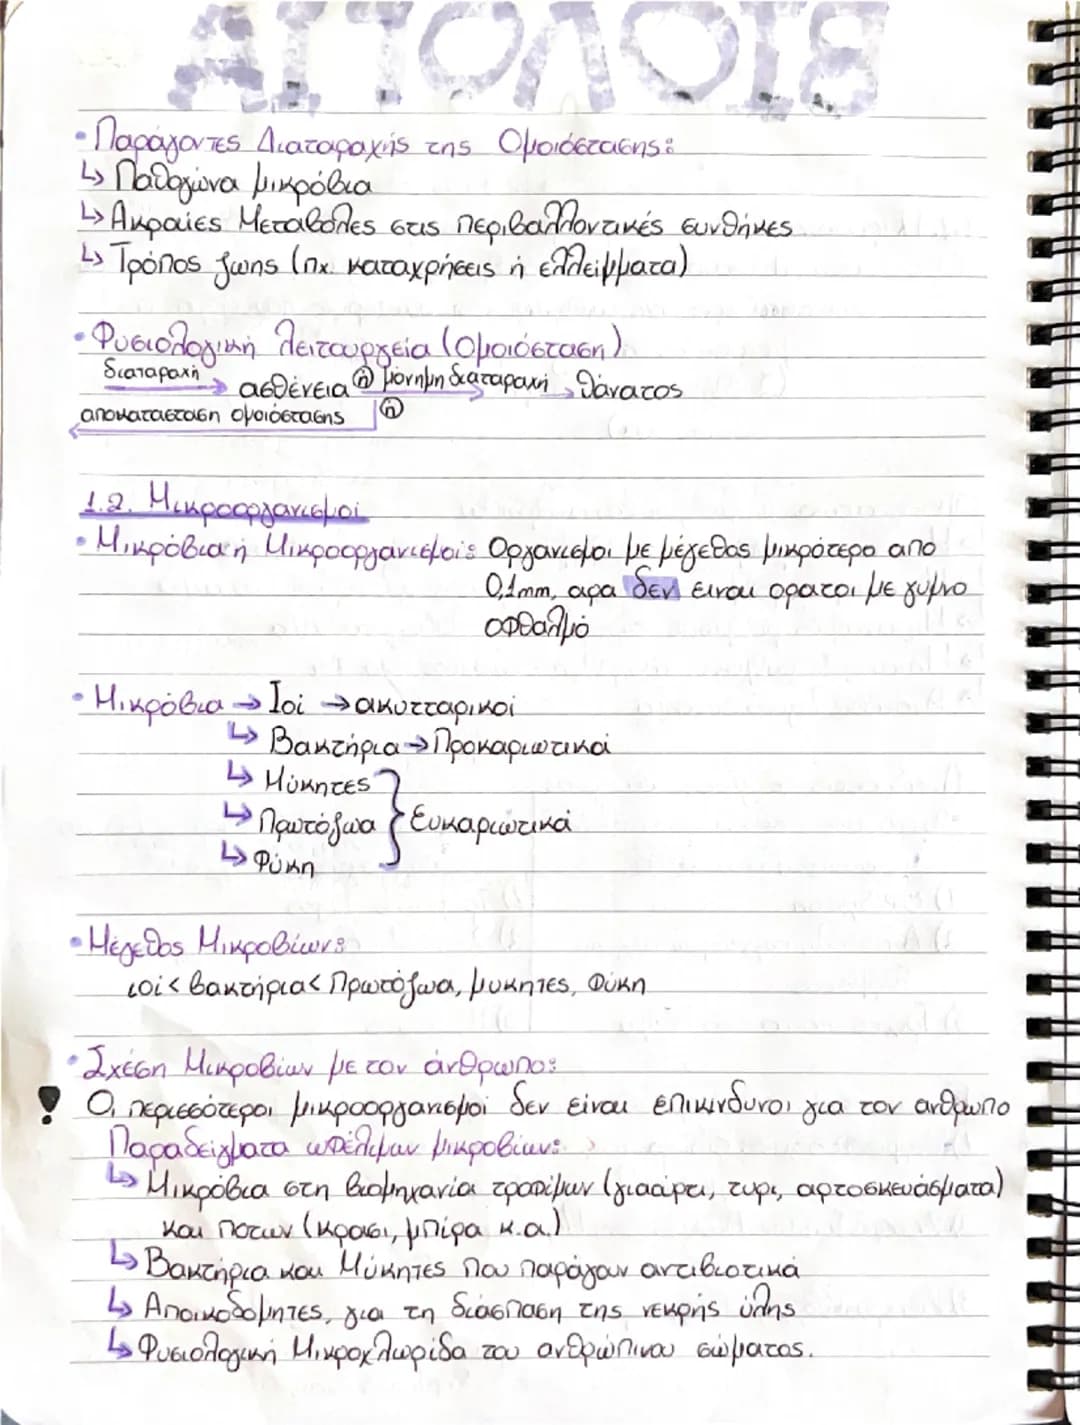 ΒΙΟΛΟΓΙΑ
• Παράγοντες Διαταραχής της Ομοιόστασης:
↳ Παθογώνα μικρόβια
↳ Ακραίες Μεταβολές στις περιβαλλοντικές συνθήκες
↳ Τρόπος ζωης (πχ. καταχρήσεις ή ελλείμματα)
• Φυσιολογική λειτουργεία (Ομοιόσταση)
διαταραχή → ασθένεια ή μόνημη διαταραχή → θάνατος
αποκατασταση ομοιόστασης ή
1.2. Μικροοργανισμοί
• Μικρόβια ή Μικροοργανισμοί: Οργανισμοι με μέγεθος μικρότερο απο
0,1mm, αρα δεν ειναι ορατοι με γυμνο
οφθαλμό
• Μικρόβια → Ιοί → ακυτταρικοί
↳ Βακτήρια → Προκαριωτικά
↳ Μύκητες
↳ Πρωτόζωα } Ευκαριώτικά
↳ Φύκη
• Μέγεθος Μικροβίων:
ιοί < βακτήρια < Πρωτόζωα, μυκητες, Φύκη
• Σχέση Μικροβίων με τον άνθρωπο:
! Οι περισσότεροι μικροοργανισμοί δεν είναι επικινδυνοι για τον ανθρωπο
Παραδείγματα ωφέλιμων μικροβίων:
↳ Μικρόβια στη βιομηχανία τροφίμων (γιαούρτι, τυρι, αρτοσκευάσματα)
και ποτων (κρασι, μπίρα κ.α.)
↳ Βακτήρια και Μύκητες που παράγουν αντιβιοτικά
↳ Αποικοδομητες, για τη διάσπαση της νεκρής ύλης
↳ Φυσιολογική Μικροχλωρίδα του ανθρώπινου σώματος.